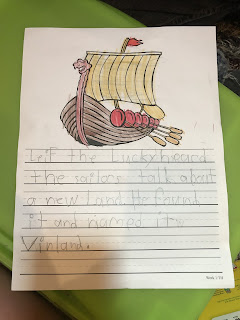 Leif the Lucky heard
the sailors talk about
a new land. He found
it and named it
Vinland.